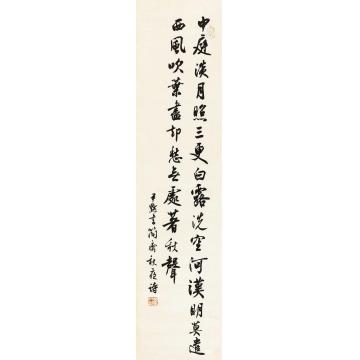 中庭淡月照三更白露洗空河漢明莫遣
西風吹葉盡却愁無處著秋聲
尹默書簡齋秋夜詩